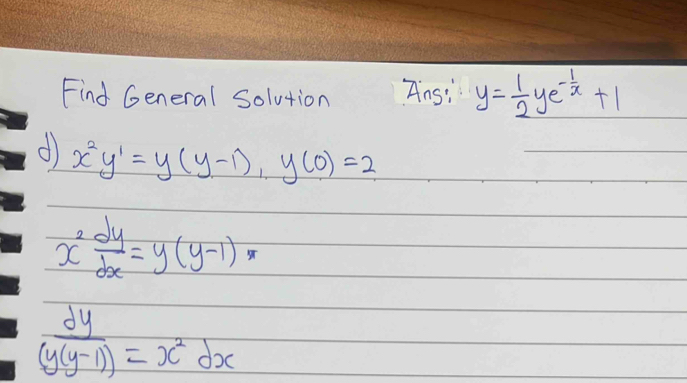 Find General Solution Ans: y = 1/2 ye^(-1/x) + 1
d) x²y' = y(y-1), y(0) = 2
x² dy/dx = y(y-1)
dy/(y(y-1)) = x² dx